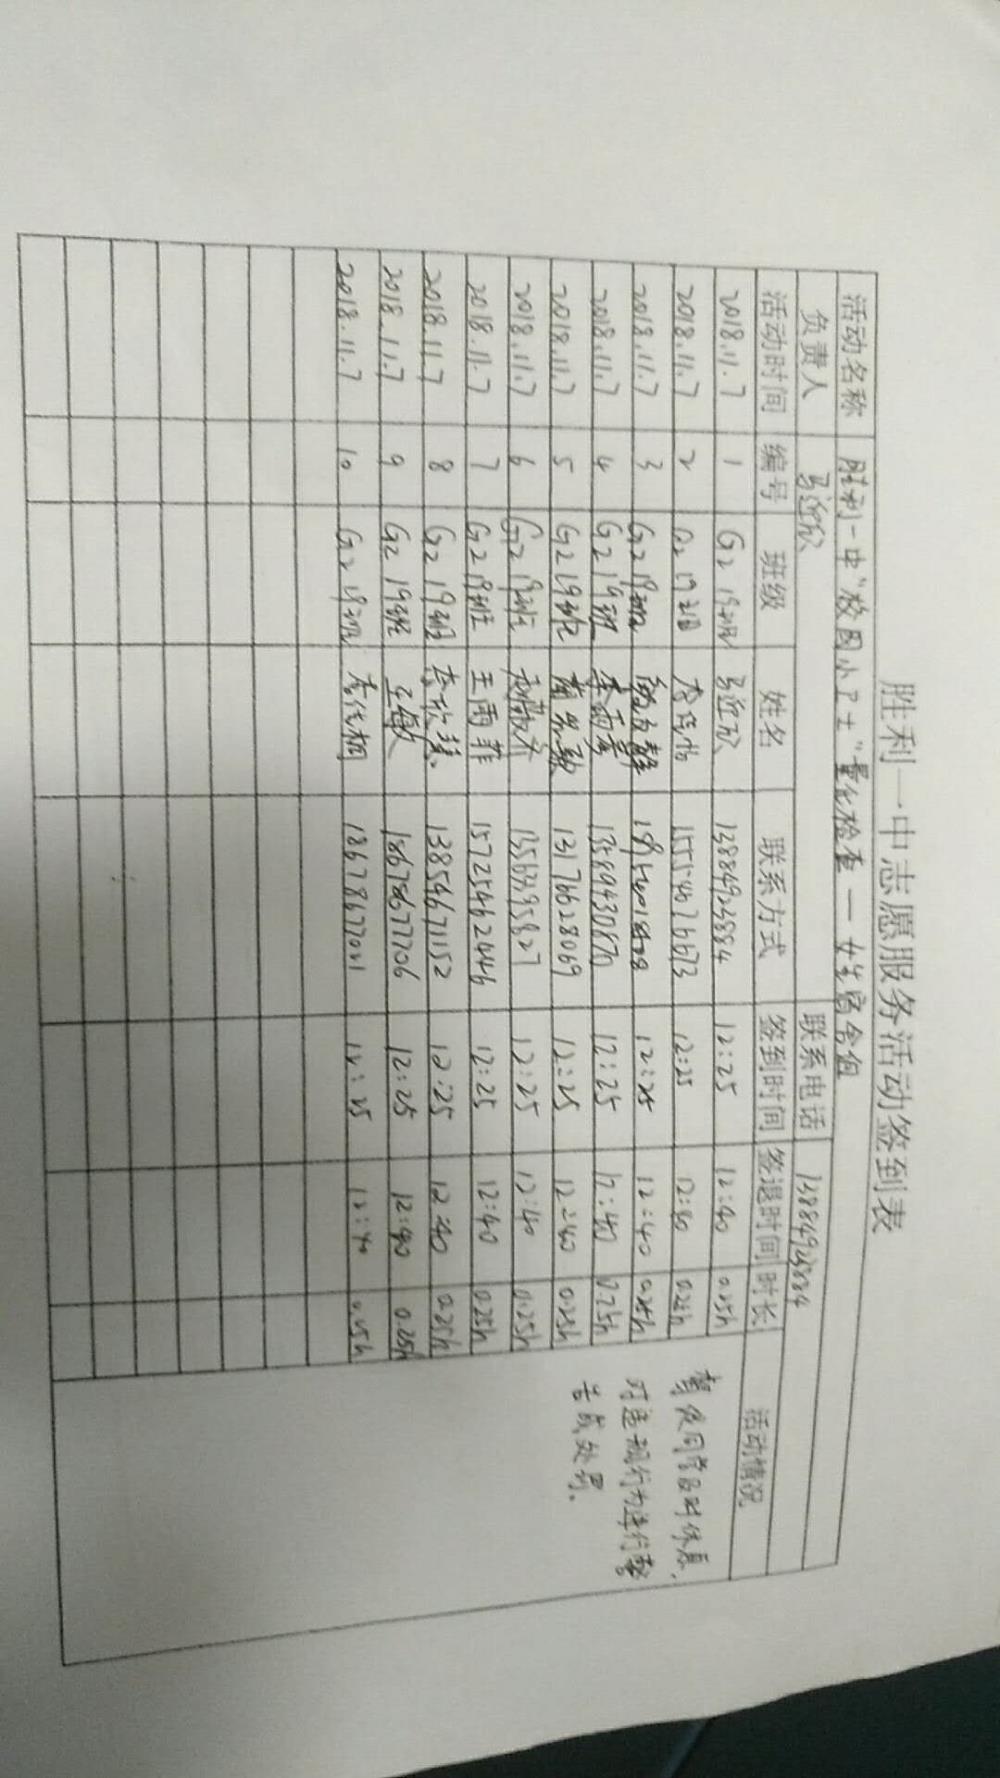 胜利一中志愿服务活动签到表
活动名称 胜利一中"校园小卫士"量化检查—女生宿舍值
负责人 马迎欣 联系电话 13884923884
活动时间 编号 班级 姓名 联系方式 签到时间 签退时间 时长 活动情况
2018.11.7 1 G2 19班 马迎欣 13884923884 12:25 12:40 0.25h
2018.11.7 2 G2 19班 12:25 12:40 0.25h
2018.11.7 3 G2 19班 12:25 12:40 0.25h
2018.11.7 4 G2 19班 12:25 12:40 0.25h
2018.11.7 5 G2 19班 13176628069 12:25 12:40 0.25h
2018.11.7 6 G2 19班 12:25 12:40 0.25h
2018.11.7 7 G2 19班 王雨菲 15725462446 12:25 12:40 0.25h
2018.11.7 8 G2 19班 13854671152 12:25 12:40 0.25h
2018.11.7 9 G2 19班 王敏 18678677706 12:25 12:40 0.25h
2018.11.7 10 G2 19班 18678677021 12:25 12:40 0.25h
督促同学及时休息,
对违规行为进行警
告或处罚.